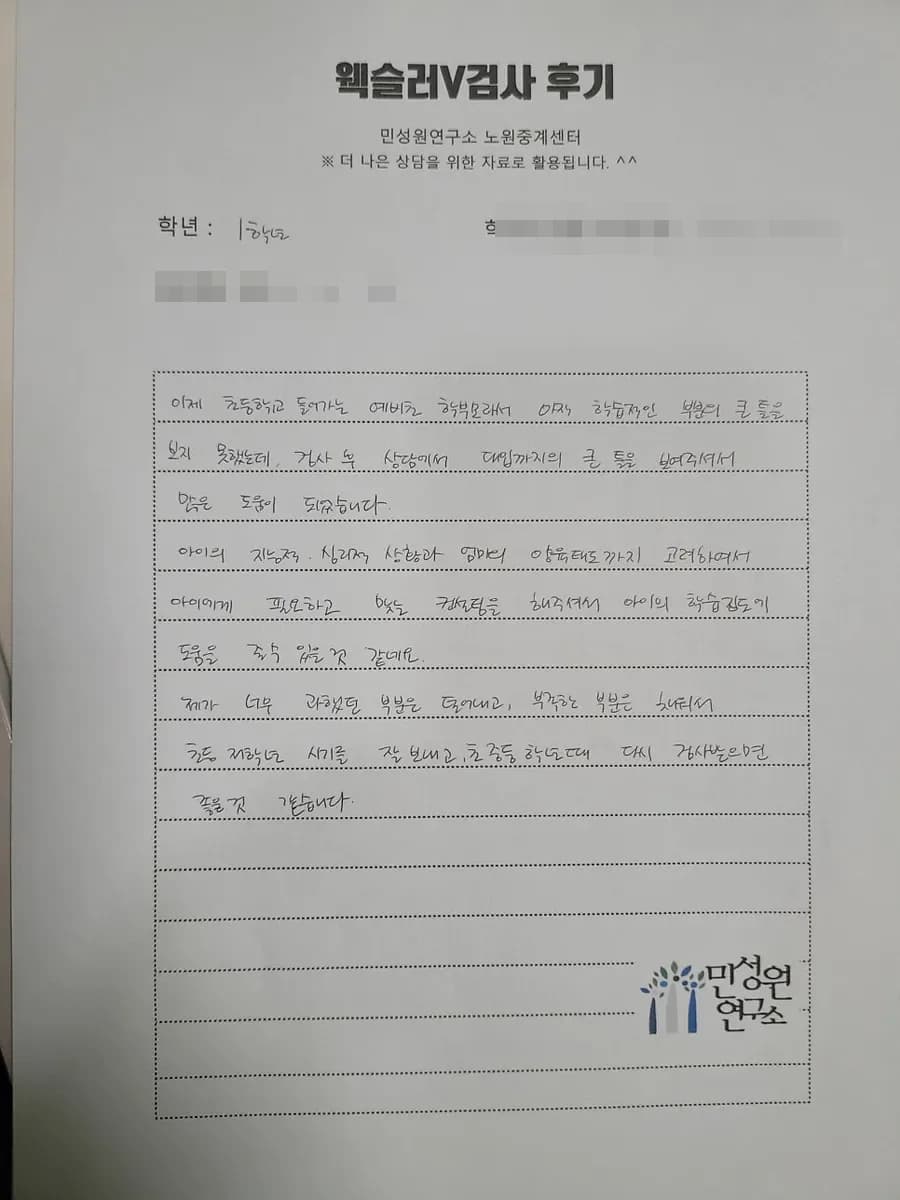 웩슬러V검사 후기
민성원연구소 노원중계센터
※ 더 나은 상담을 위한 자료로 활용됩니다. ^^
학년 : 1학년
이제 초등학교 들어가는 예비초 학부모라서 아직 학습적인 부분의 큰 틀을
보지 못했는데, 검사 후 상담에서 대입까지의 큰 틀을 보여주셔서
많은 도움이 되었습니다.
아이의 지능적. 심리적 상황과 엄마의 양육태도까지 고려하여서
아이에게 필요하고 맞는 컨설팅을 해주셔서 아이의 학습지도에
도움을 줄수 있을것 같네요.
제가 너무 과했던 부분은 덜어내고, 부족한 부분은 채워서
초등 저학년 시기를 잘 보내고, 초 중등 학년때 다시 검사받으면
좋을것 같습니다.
민성원
연구소